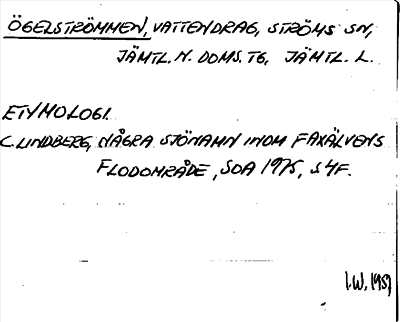 ÖGELSTRÖMMEN, VATTENDRAG, STRÖMS SN,
JÄMTL. N. DOMS. TG, JÄMTL. L.
ETYMOLOGI.
C. LINDBERG, NÅGRA SJÖNAMN INOM FAXÄLVENS
FLODOMRÅDE, SOA 1975, S 4F.
I.W. 1981